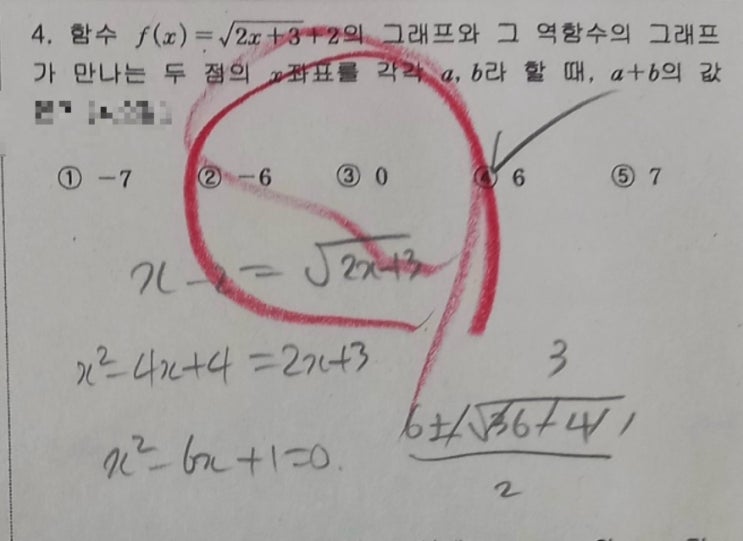 4. 함수 f(x)=√2x+3+2의 그래프와 그 역함수의 그래프
가 만나는 두 점의 x좌표를 각각 a, b라 할 때, a+b의 값
① -7 ② -6 ③ 0 ④ 6 ⑤ 7
x-2=√2x+3
x²-4x+4=2x+3
3
x²-6x+1=0.
6±√36-4
2